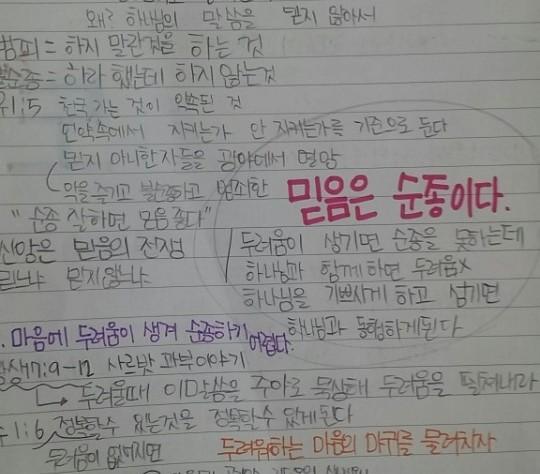 왜? 하나님의 말씀을 믿지 않아서
범죄 = 하지 말란것을 하는 것
불순종 = 하라 했는데 하지 않는것
1:5 천국 가는 것이 약속된 것
언약속에서 지키는가 안 지키는가를 기준으로 둔다
믿지 아니한 자들을 광야에서 멸망
악을 즐기고 불순종하고 범죄한
믿음은 순종이다.
"순종 잘하면 모음 좋다"
신앙은 믿음의 전쟁
믿느냐 믿지않느냐
두려움이 생기면 순종을 못하는데
하나님과 함께하면 두려움x
하나님을 기쁘시게 하고 섬기면
하나님과 동행하게된다
. 마음에 두려움이 생겨 순종하기 어렵다.
7:9-12 사르밧 과부이야기
두려울때 이말씀을 주야로 묵상해 두려움을 떨쳐내라
1:6 정복할수 없는것을 정복할수 있게된다
두려움이 없어지면
두려워하는 마음의 마귀를 물리치자